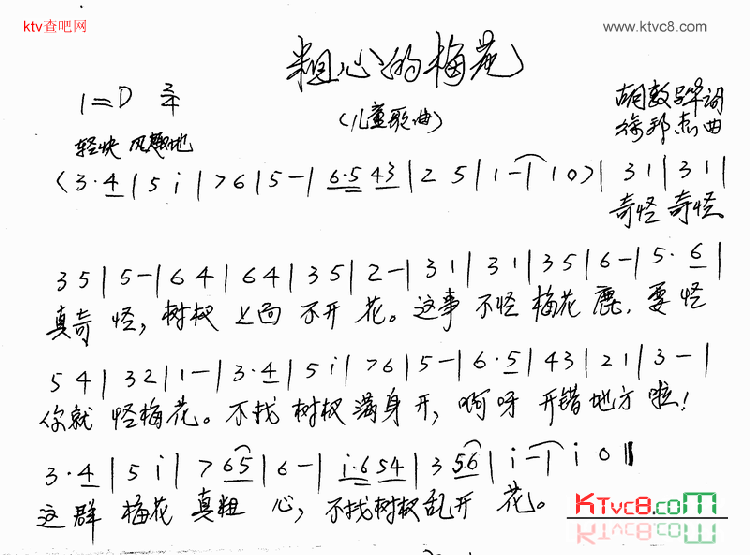 ktv查吧网
www.ktvc8.com
粗心的梅花
(儿童歌曲)
1=D 2/4
胡敦骅词
徐邦杰曲
轻快 风趣地
(3·4|5 i|7 6|5 -|6·5 43|2 5|1 -|1 0)|3 1|3 1|
奇怪 奇怪
3 5|5 -|6 4|6 4|3 5|2 -|3 1|3 1|3 5|6 -|5·6|
真奇怪,树杈上面不开花。这事不怪梅花鹿,要怪
5 4|3 2|1 -|3·4|5 i|7 6|5 -|6·5|4 3|2 1|3 -|
你就怪梅花。不找树杈满身开,啊呀开错地方啦!
3·4|5 i|7 65|6 -|i·6 54|3 56|i -|i 0‖
这群梅花真粗心,不找树杈乱开花。
KTvc8.com
KTvc8.com